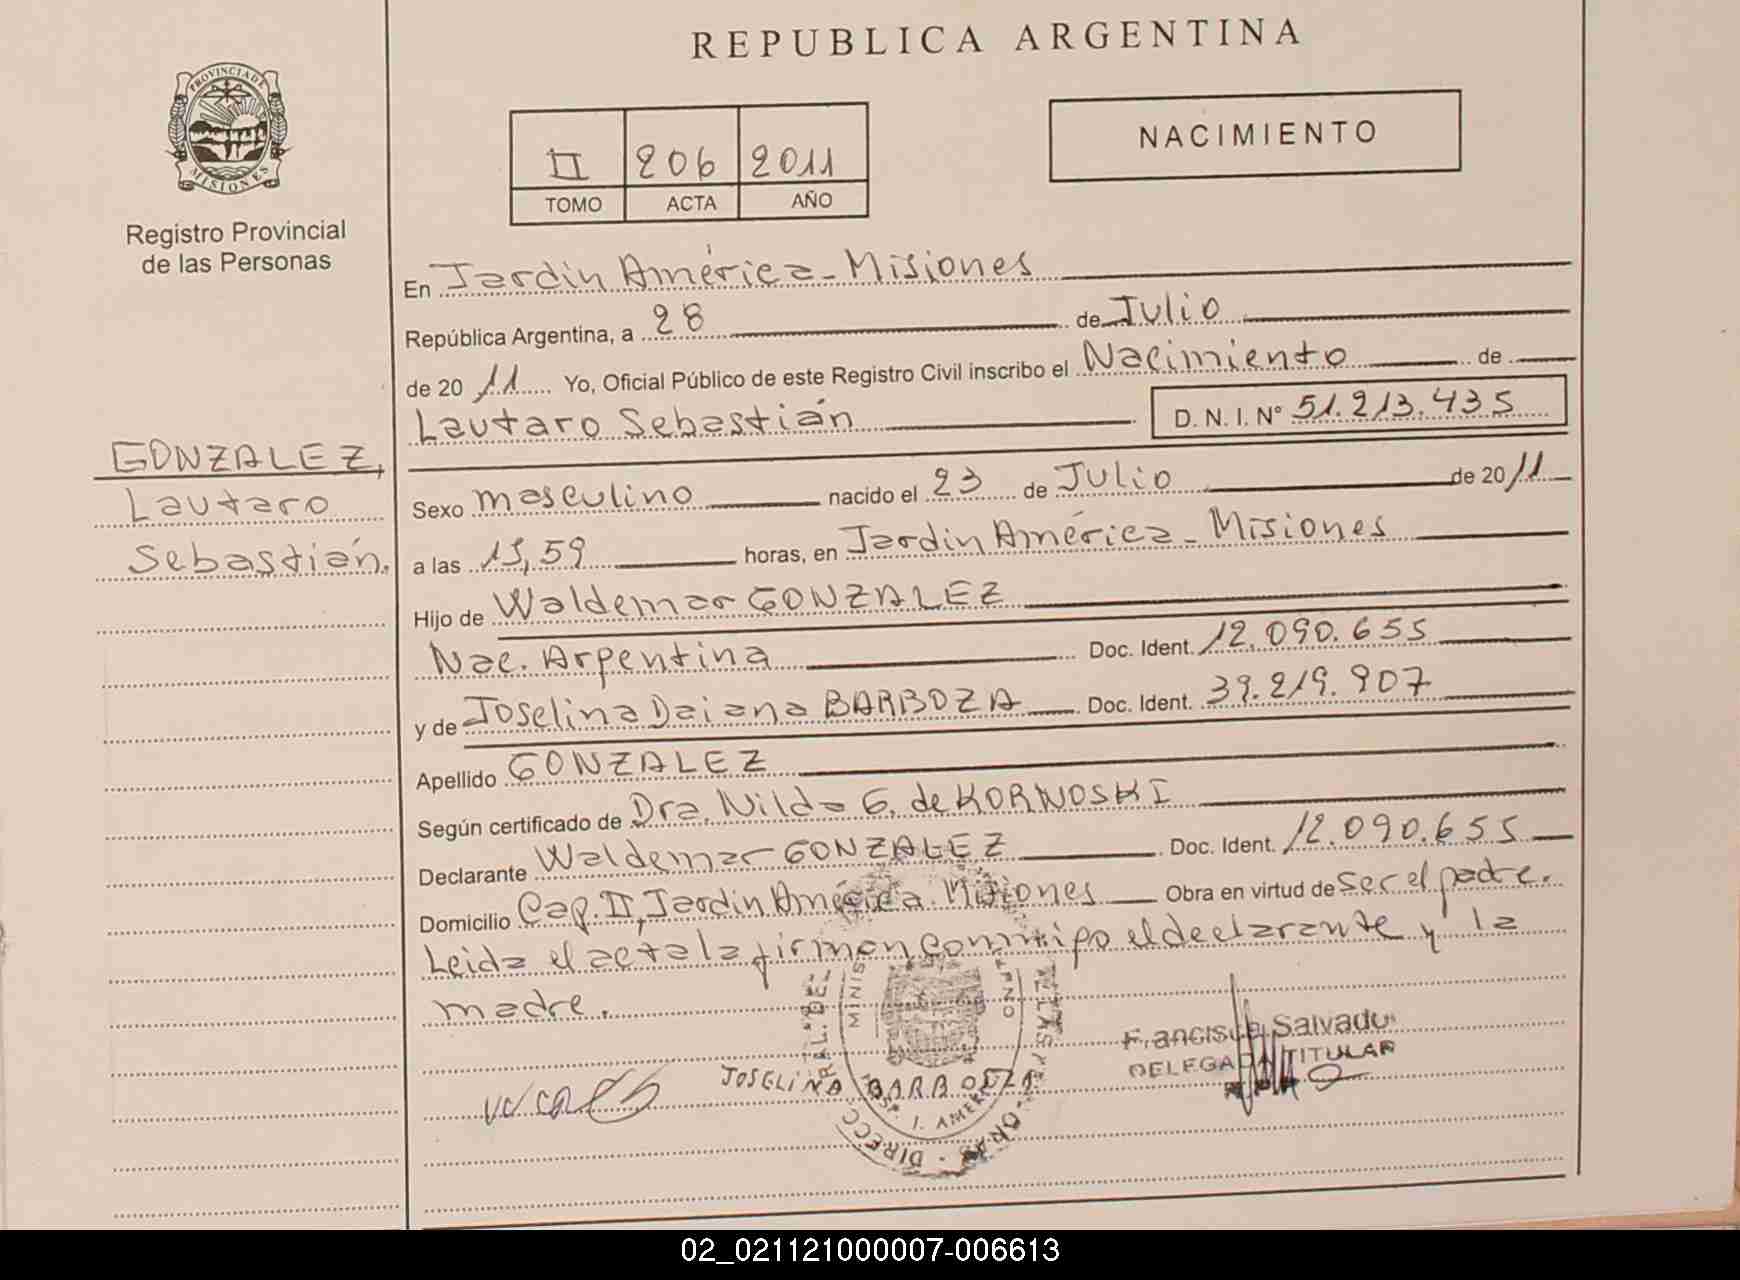 REPUBLICA ARGENTINA
PROVINCIA DE
MISIONES
Registro Provincial
de las Personas
II 206 2011
TOMO ACTA AÑO
NACIMIENTO
En Jardín América - Misiones
República Argentina, a 28 de Julio
de 2011 Yo, Oficial Público de este Registro Civil inscribo el Nacimiento de
Lautaro Sebastián D. N. I. N° 51.213.435
GONZALEZ,
Lautaro
Sebastián.
Sexo masculino nacido el 23 de Julio de 2011
a las 15,59 horas, en Jardin América - Misiones
Hijo de Waldemar GONZALEZ
Nac. Argentina Doc. Ident. 12.090.655
y de Joselina Daiana BARBOZA Doc. Ident. 39.219.907
Apellido GONZALEZ
Según certificado de Dra. Nilda G. de KORNOSKI
Declarante Waldemar GONZALEZ Doc. Ident. 12.090.655
Domicilio Cap. II, Jardin América. Misiones Obra en virtud de ser el padre.
Leida el acta la firman conmigo el declarante y la
madre.
JOSELINA BARBOZA
Francisca Salvado
DELEGADA TITULAR
02_021121000007-006613